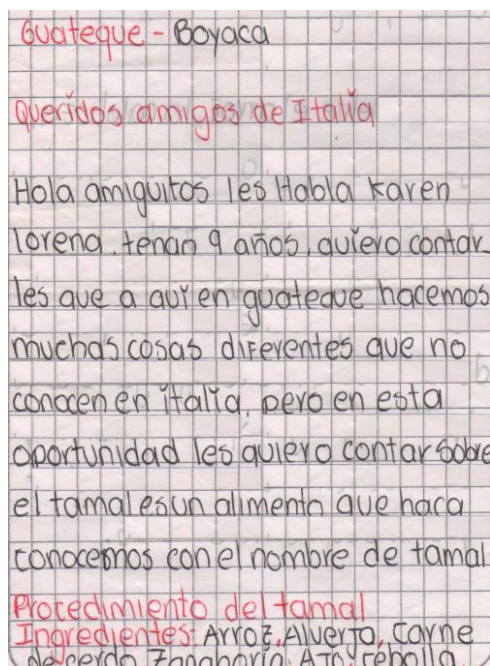 Guateque - Boyaca
Queridos amigos de Italia
Hola amiguitos les Habla Karen
lorena. tengo 9 años, quiero contar
les que a qui en guateque hacemos
muchas cosas diferentes que no
conocen en italia, pero en esta
oportunidad les quiero contar sobre
el tamal es un alimento que haca
conocemos con el nombre de tamal
Procedimiento del tamal
Ingredientes: Arroz, Alverja, Carne
de cerdo Zanahoria, Ajo, cebolla